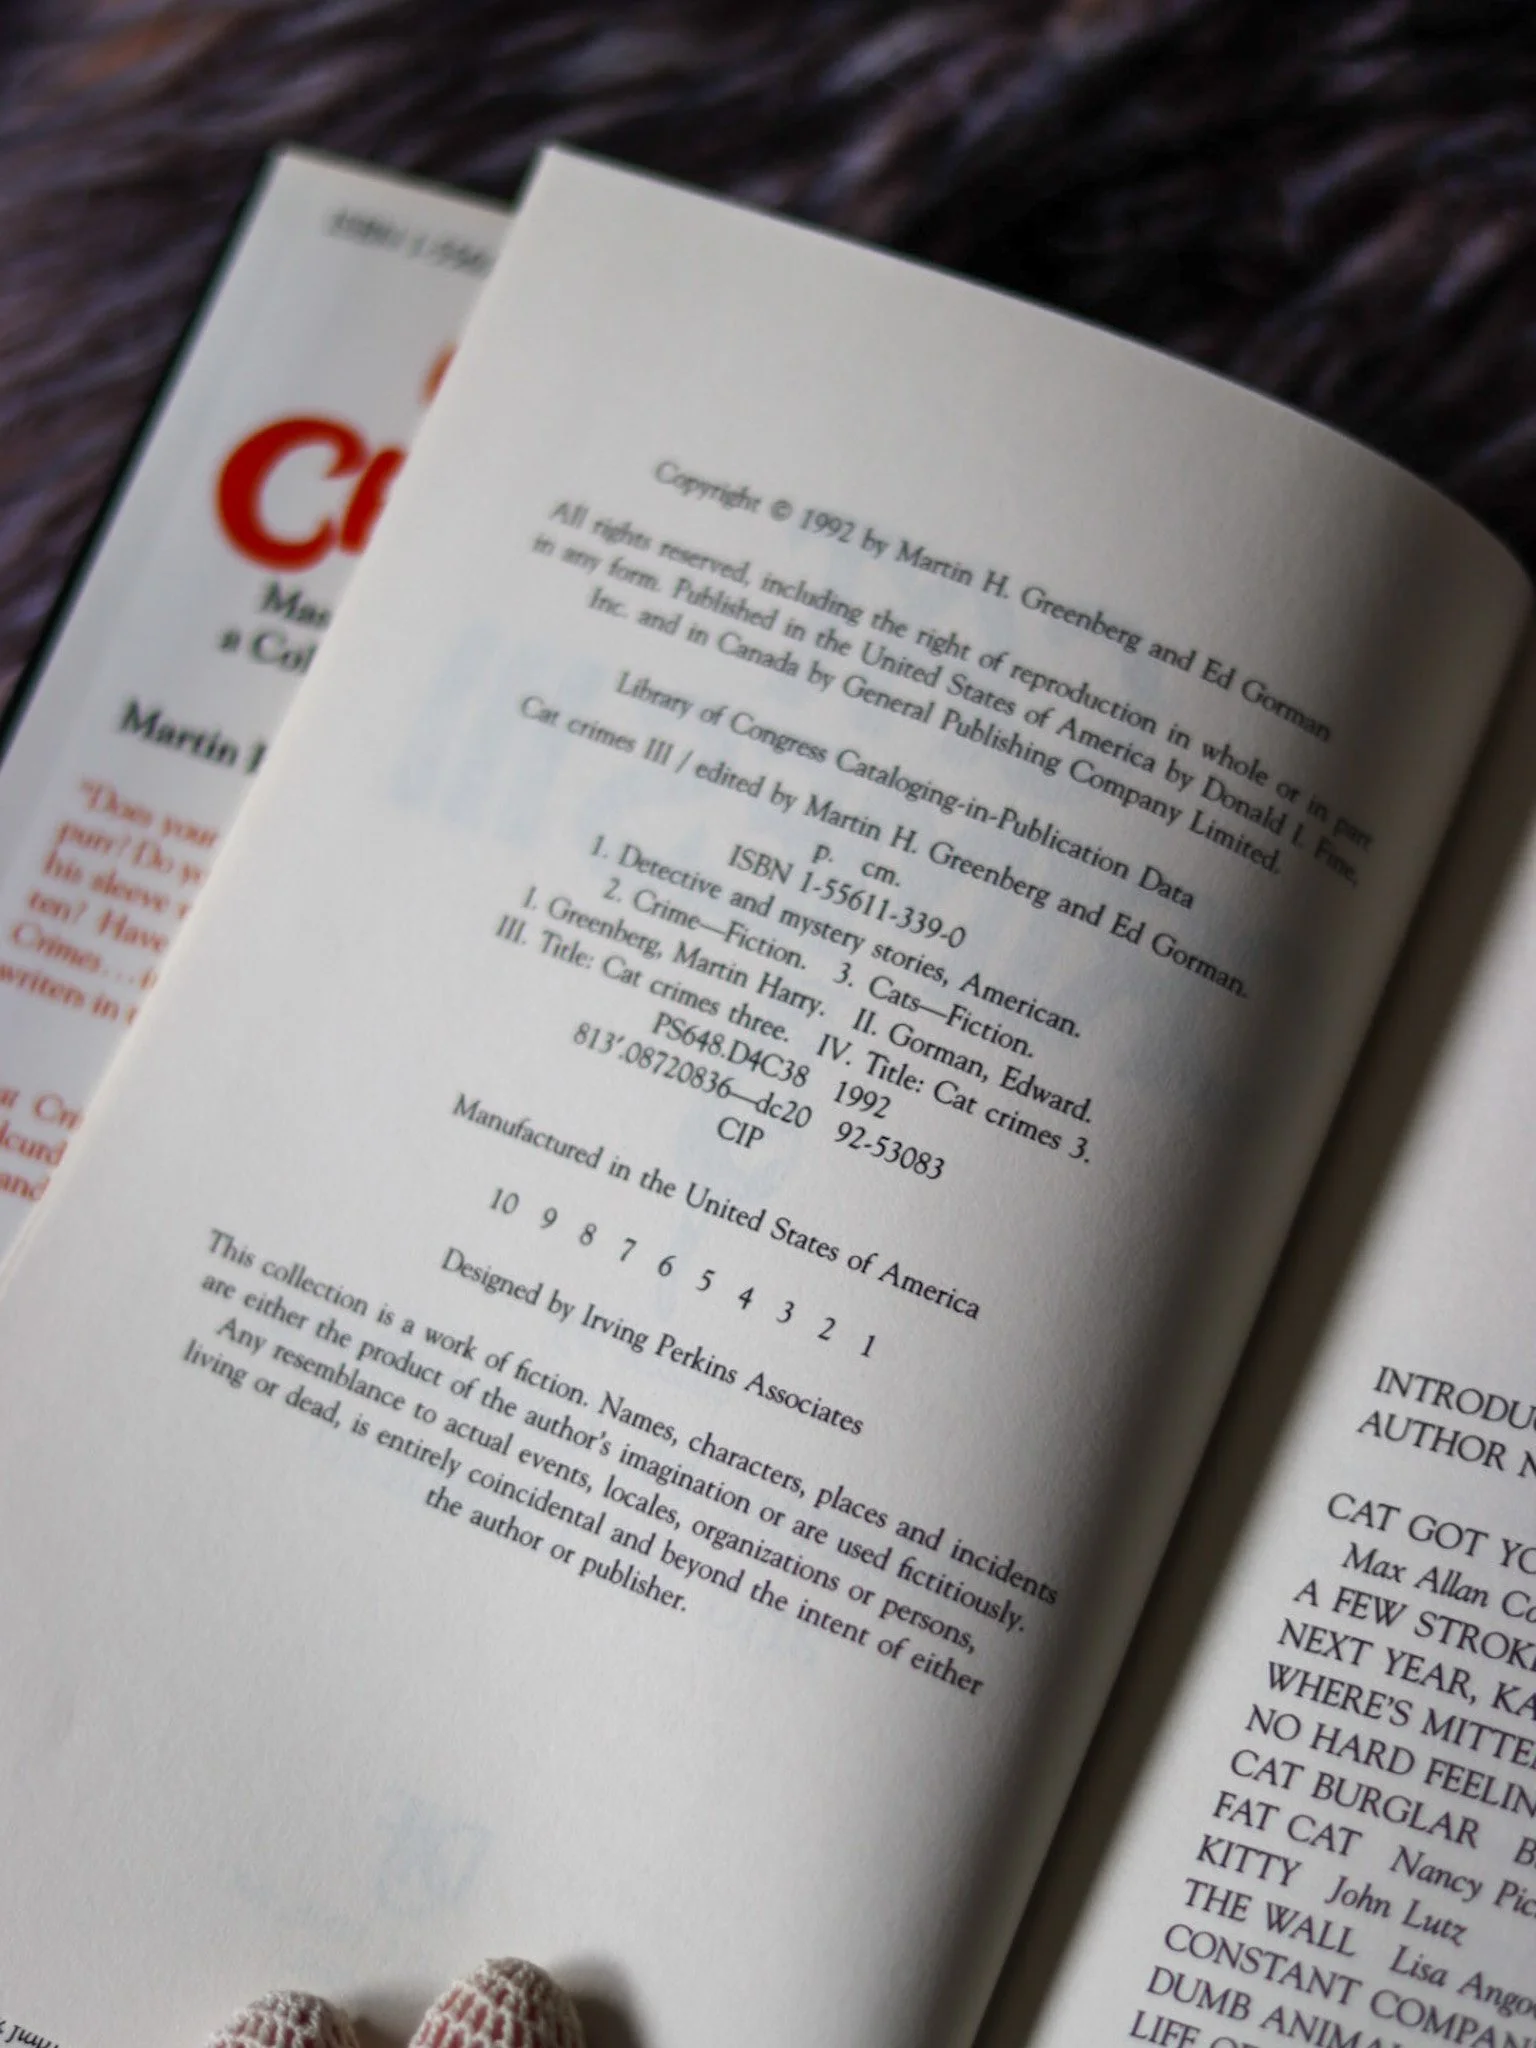 ISBN 1-556
Ch
Mas
a Col
Martin H
"Does your
purr? Do yo
his sleeve
ten? Have
Crimes...
writers in t
at Cri
and
Copyright © 1992 by Martin H. Greenberg and Ed Gorman
All rights reserved, including the right of reproduction in whole or in part
in any form. Published in the United States of America by Donald I. Fine,
Inc. and in Canada by General Publishing Company Limited.
Library of Congress Cataloging-in-Publication Data
Cat crimes III / edited by Martin H. Greenberg and Ed Gorman.
p. cm.
ISBN 1-55611-339-0
1. Detective and mystery stories, American.
2. Crime—Fiction. 3. Cats—Fiction.
I. Greenberg, Martin Harry. II. Gorman, Edward.
III. Title: Cat crimes three. IV. Title: Cat crimes 3.
PS648.D4C38 1992
813'.08720836—dc20 92-53083
CIP
Manufactured in the United States of America
10 9 8 7 6 5 4 3 2 1
Designed by Irving Perkins Associates
This collection is a work of fiction. Names, characters, places and incidents
are either the product of the author's imagination or are used fictitiously.
Any resemblance to actual events, locales, organizations or persons,
living or dead, is entirely coincidental and beyond the intent of either
the author or publisher.
INTRODU
AUTHOR N
CAT GOT YO
Max Allan Co
A FEW STROK
NEXT YEAR, KA
WHERE'S MITTE
NO HARD FEELIN
CAT BURGLAR B
FAT CAT Nancy Pic
KITTY John Lutz
THE WALL Lisa Ango
CONSTANT COMPAN
DUMB ANIMA
LIFE O